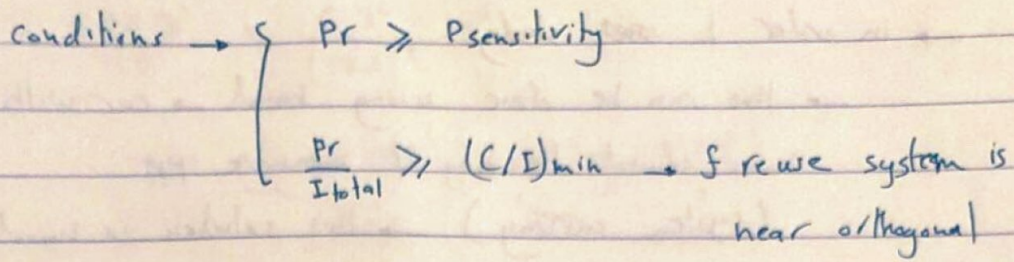 conditions → { Pr ⩾ Psensitivity
Pr / Itotal ⩾ (C/I)min → f reuse system is
near orthogonal